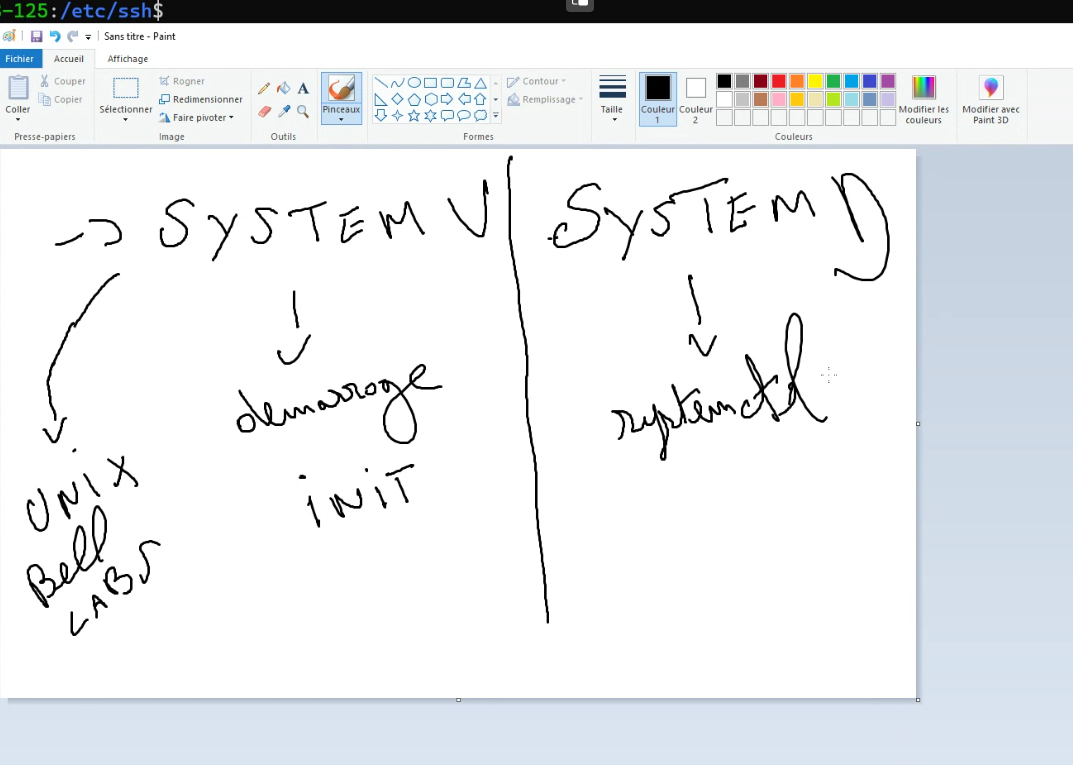 3-125:/etc/ssh$
Sans titre - Paint
Fichier Accueil Affichage
Coller
Couper
Copier
Presse-papiers
Sélectionner
Rogner
Redimensionner
Faire pivoter
Image
A
Outils
Pinceaux
Formes
Contour
Remplissage
Taille
Couleur 1
Couleur 2
Modifier les couleurs
Couleurs
Modifier avec Paint 3D
-> SYSTEM V
SYSTEM D
demarrage
INIT
UNIX
Bell
LABS
systemctl